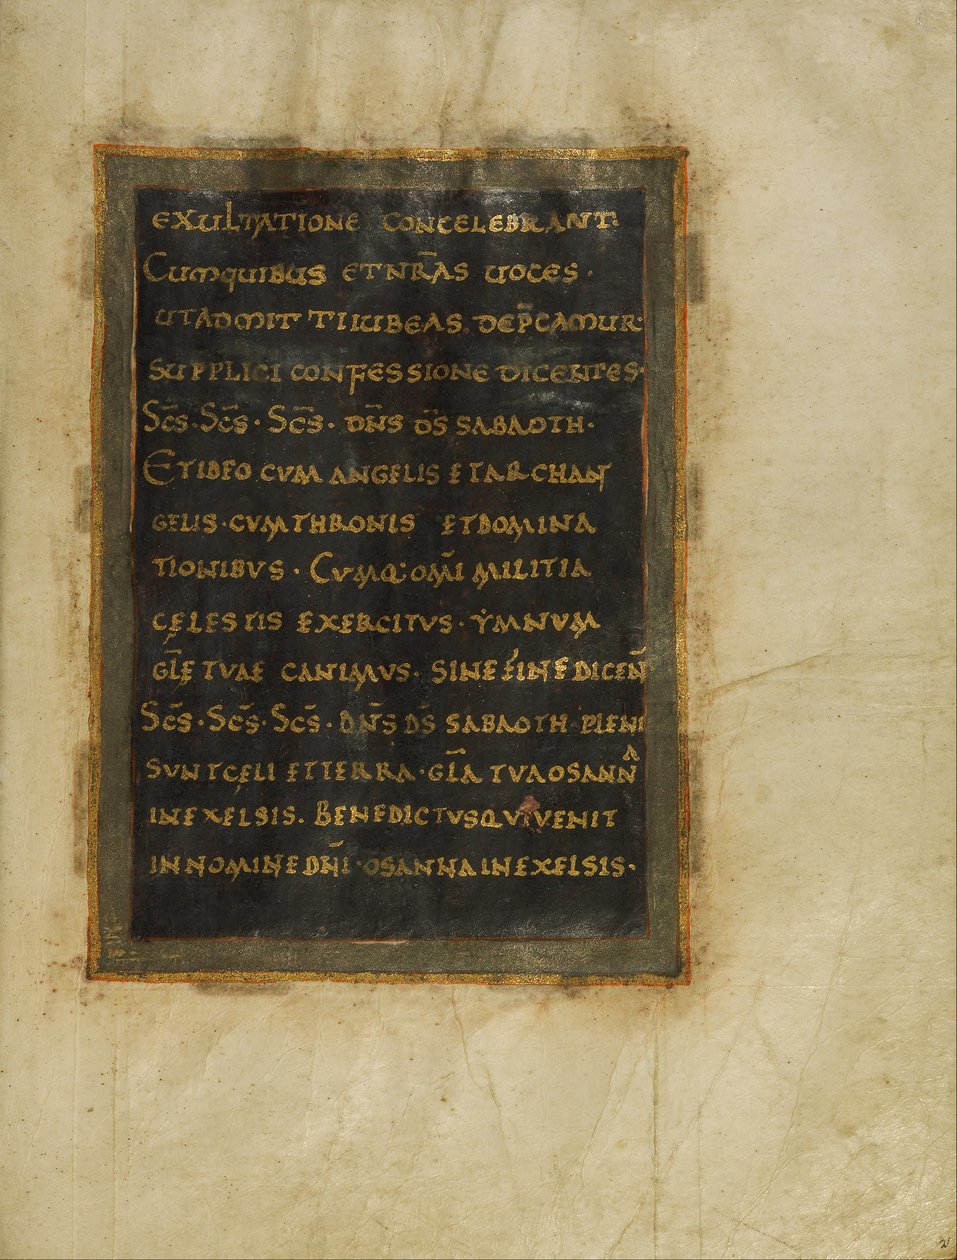 EXULTATIONE CONCELEBRANT.
CUMQUIBUS ETNR̄AS UOCES ·
UTADMITTIIUBEAS. DEP̄CAMUR·
SUPPLICI CONFESSIONE DICENTES·
SC̄S·SC̄S·SC̄S· DN̄S D̄S SABAOTH·
ETIDEO CVM ANGELIS ETARCHAN
GELIS·CVMTHRONIS ETDOMINA
TIONIBVS · CVMQ: OM̄I MILITIA
CĘLESTIS EXERCITVS· ẎMNVM
GL̄Ę TVAE CANIMVS· SINE FINE DICEN̄
SC̄S·SC̄S·SC̄S· DN̄S D̄S SABAOTH·PLENI
SVNTCĘLI ETTERRA·GL̄A TVAOSANNA
INEXELSIS. BENEDICTVSQVIVENIT
INNOMINEDN̄I·OSANNAINEXELSIS·
2